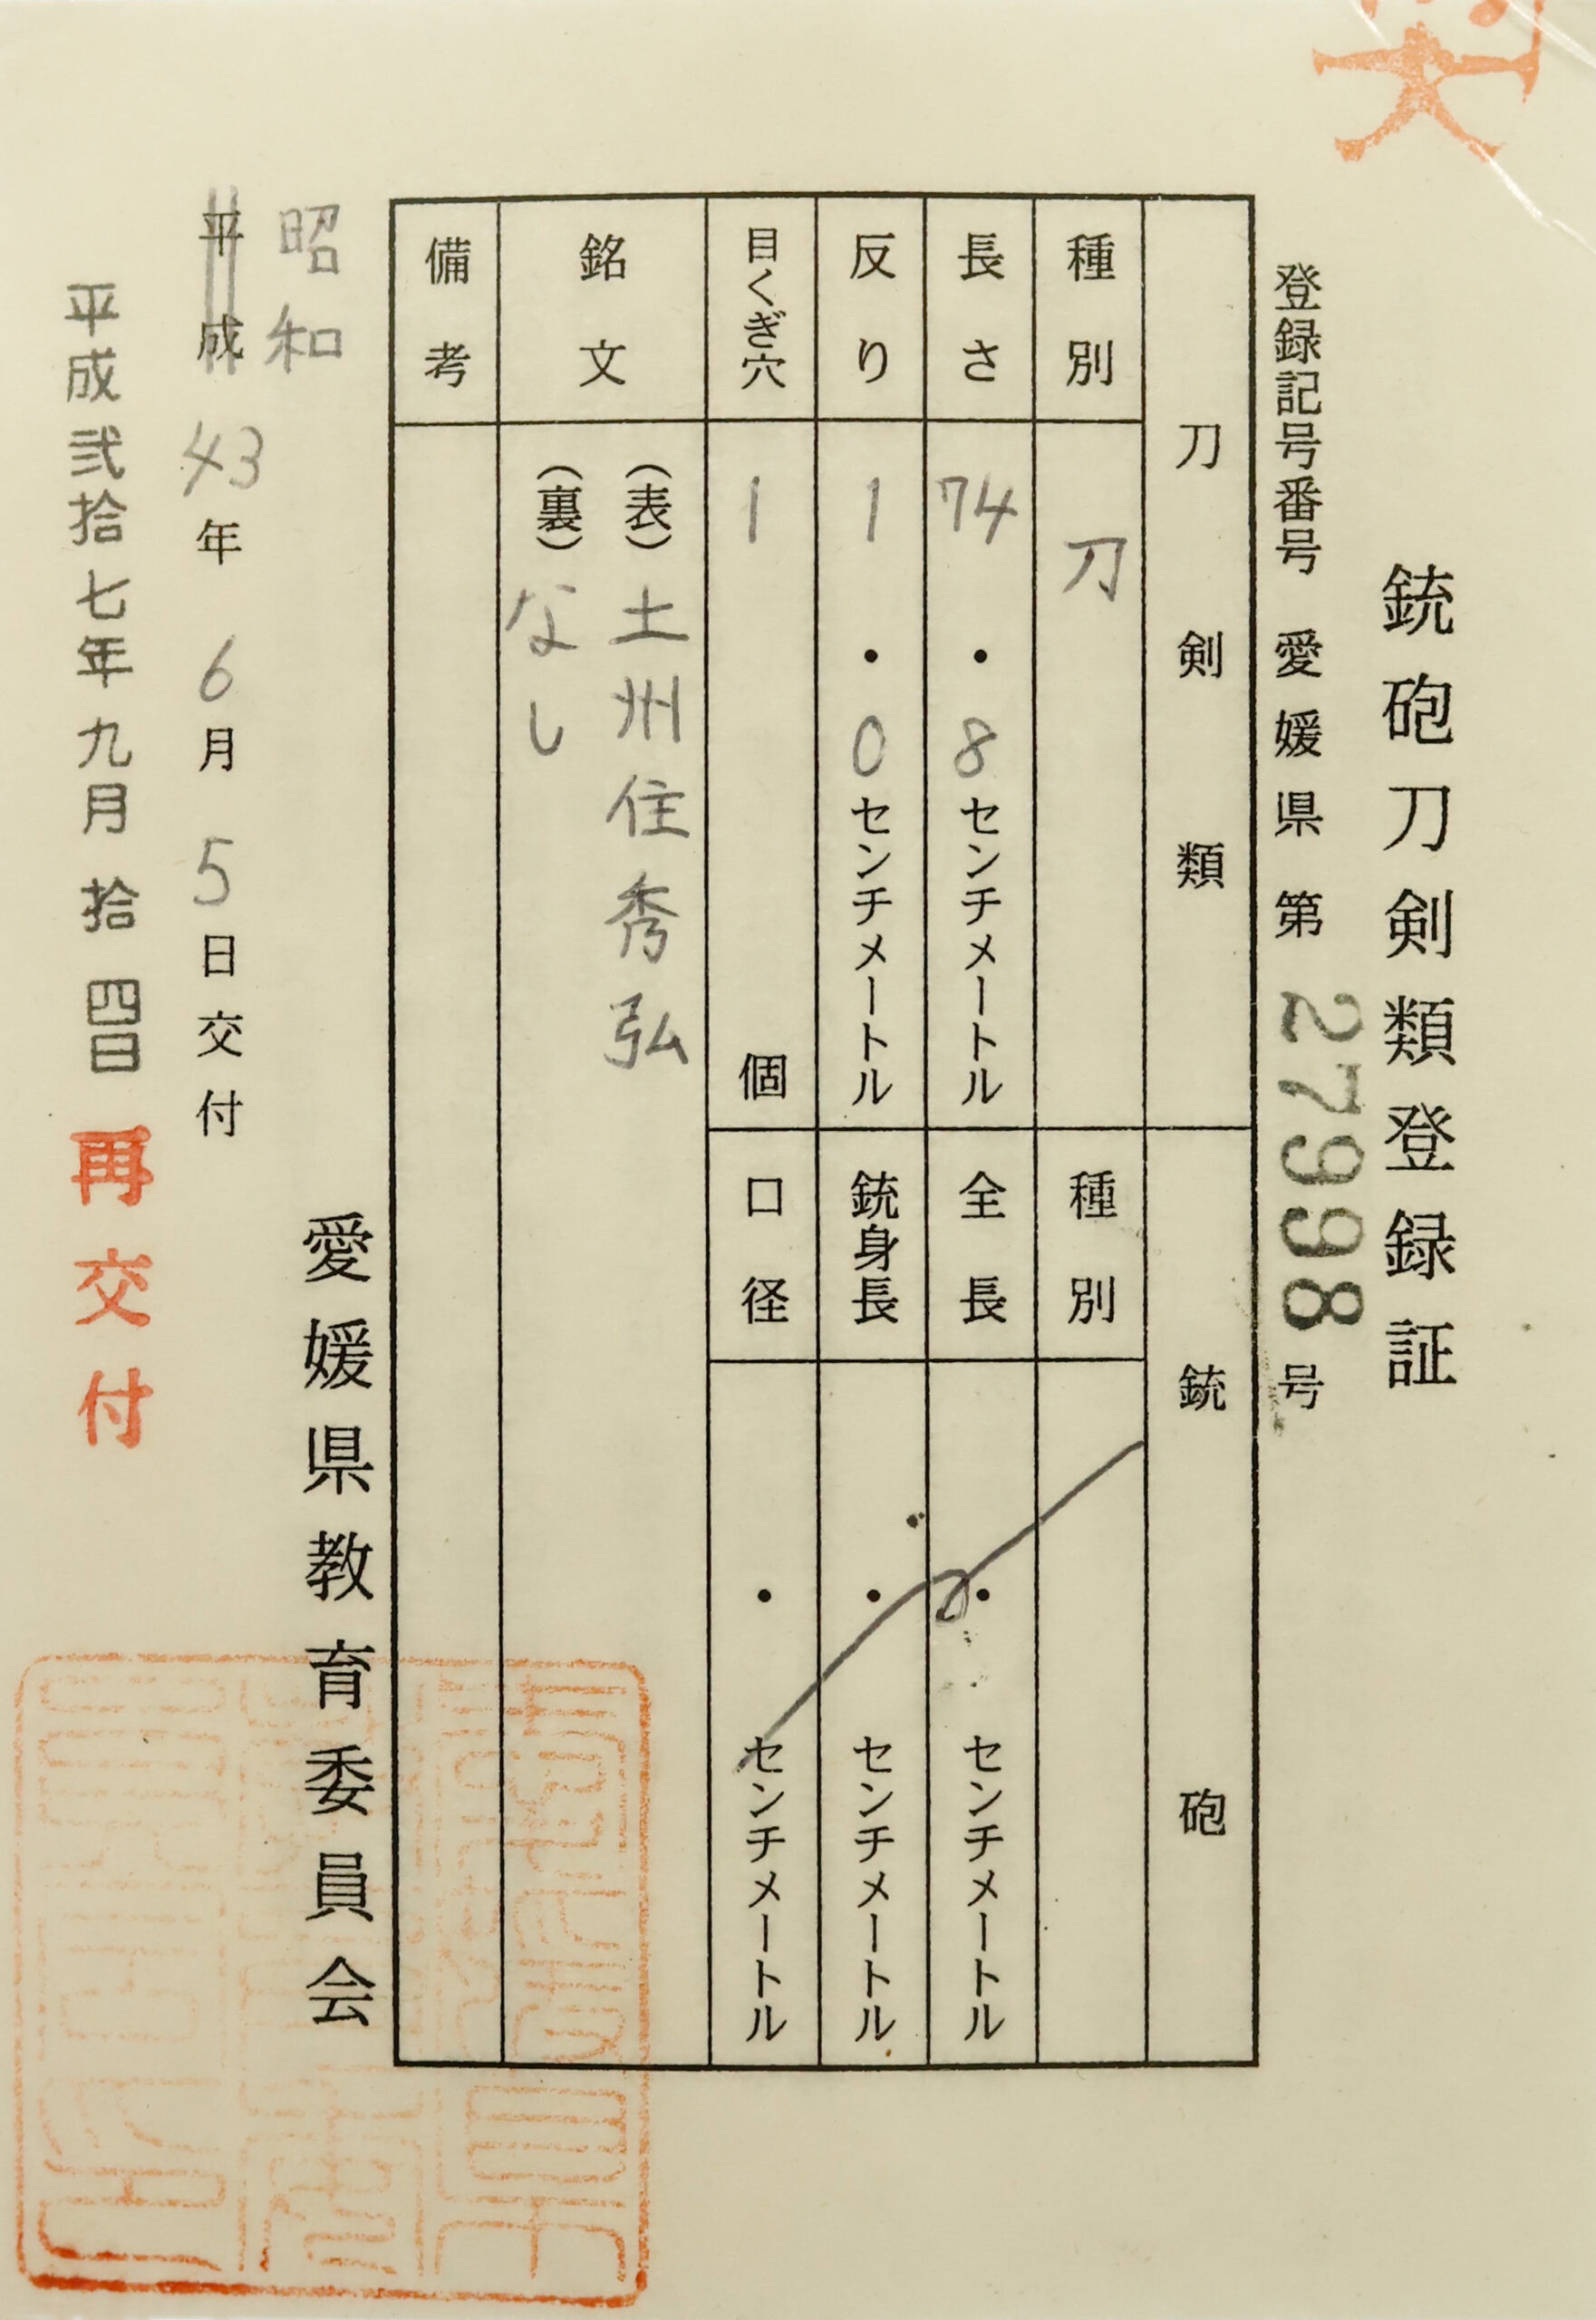 銃砲刀剣類登録証
登録記号番号 愛媛県 第 27998 号
刀剣類
銃砲
種別 刀
種別
長さ 74・8センチメートル
全長 ・ センチメートル
反り 1・0センチメートル
銃身長 ・ センチメートル
目くぎ穴 1 個
口径 ・ センチメートル
銘文
(表)土州住秀弘
(裏)なし
備考
愛媛県教育委員会
昭和
平成 43年 6月 5日交付
平成弐拾七年九月拾四日 再交付